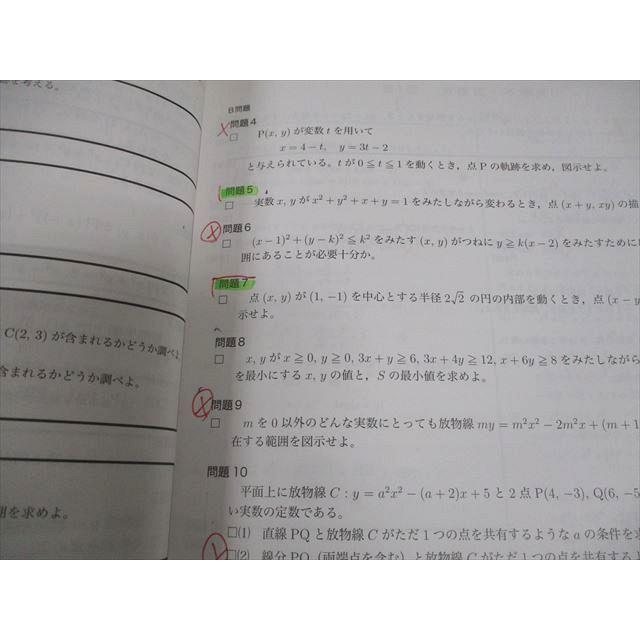 を考える。
C(2, 3) が含まれるかどうか調べよ
含まれるかどうか調べよ。
囲を求めよ。
B問題
問題4
□ P(x, y) が変数 t を用いて
x = 4 − t, y = 3t − 2
と与えられている。t が 0 ≦ t ≦ 1 を動くとき，点 P の軌跡を求め，図示せよ。
問題5
□ 実数 x, y が x² + y² + x + y = 1 をみたしながら変わるとき，点 (x + y, xy) の描
問題6
□ (x − 1)² + (y − k)² ≦ k² をみたす (x, y) がつねに y ≧ k(x − 2) をみたすために
囲にあることが必要十分か。
問題7
□ 点 (x, y) が (1, −1) を中心とする半径 2√2 の円の内部を動くとき，点 (x − y
示せよ。
問題8
□ x, y が x ≧ 0, y ≧ 0, 3x + y ≧ 6, 3x + 4y ≧ 12, x + 6y ≧ 8 をみたしながら
を最小にする x, y の値と，S の最小値を求めよ。
問題9
□ m を 0 以外のどんな実数にとっても放物線 my = m²x² − 2m²x + (m + 1
在する範囲を図示せよ。
問題10
平面上に放物線 C : y = a²x² − (a + 2)x + 5 と 2 点 P(4, −3), Q(6, −5
い実数の定数である。
□(1) 直線 PQ と放物線 C がただ 1 つの点を共有するような a の条件を求
□(2) 線分 PQ（両端点を含む）と放物線 C がただ 1 つの点を共有する